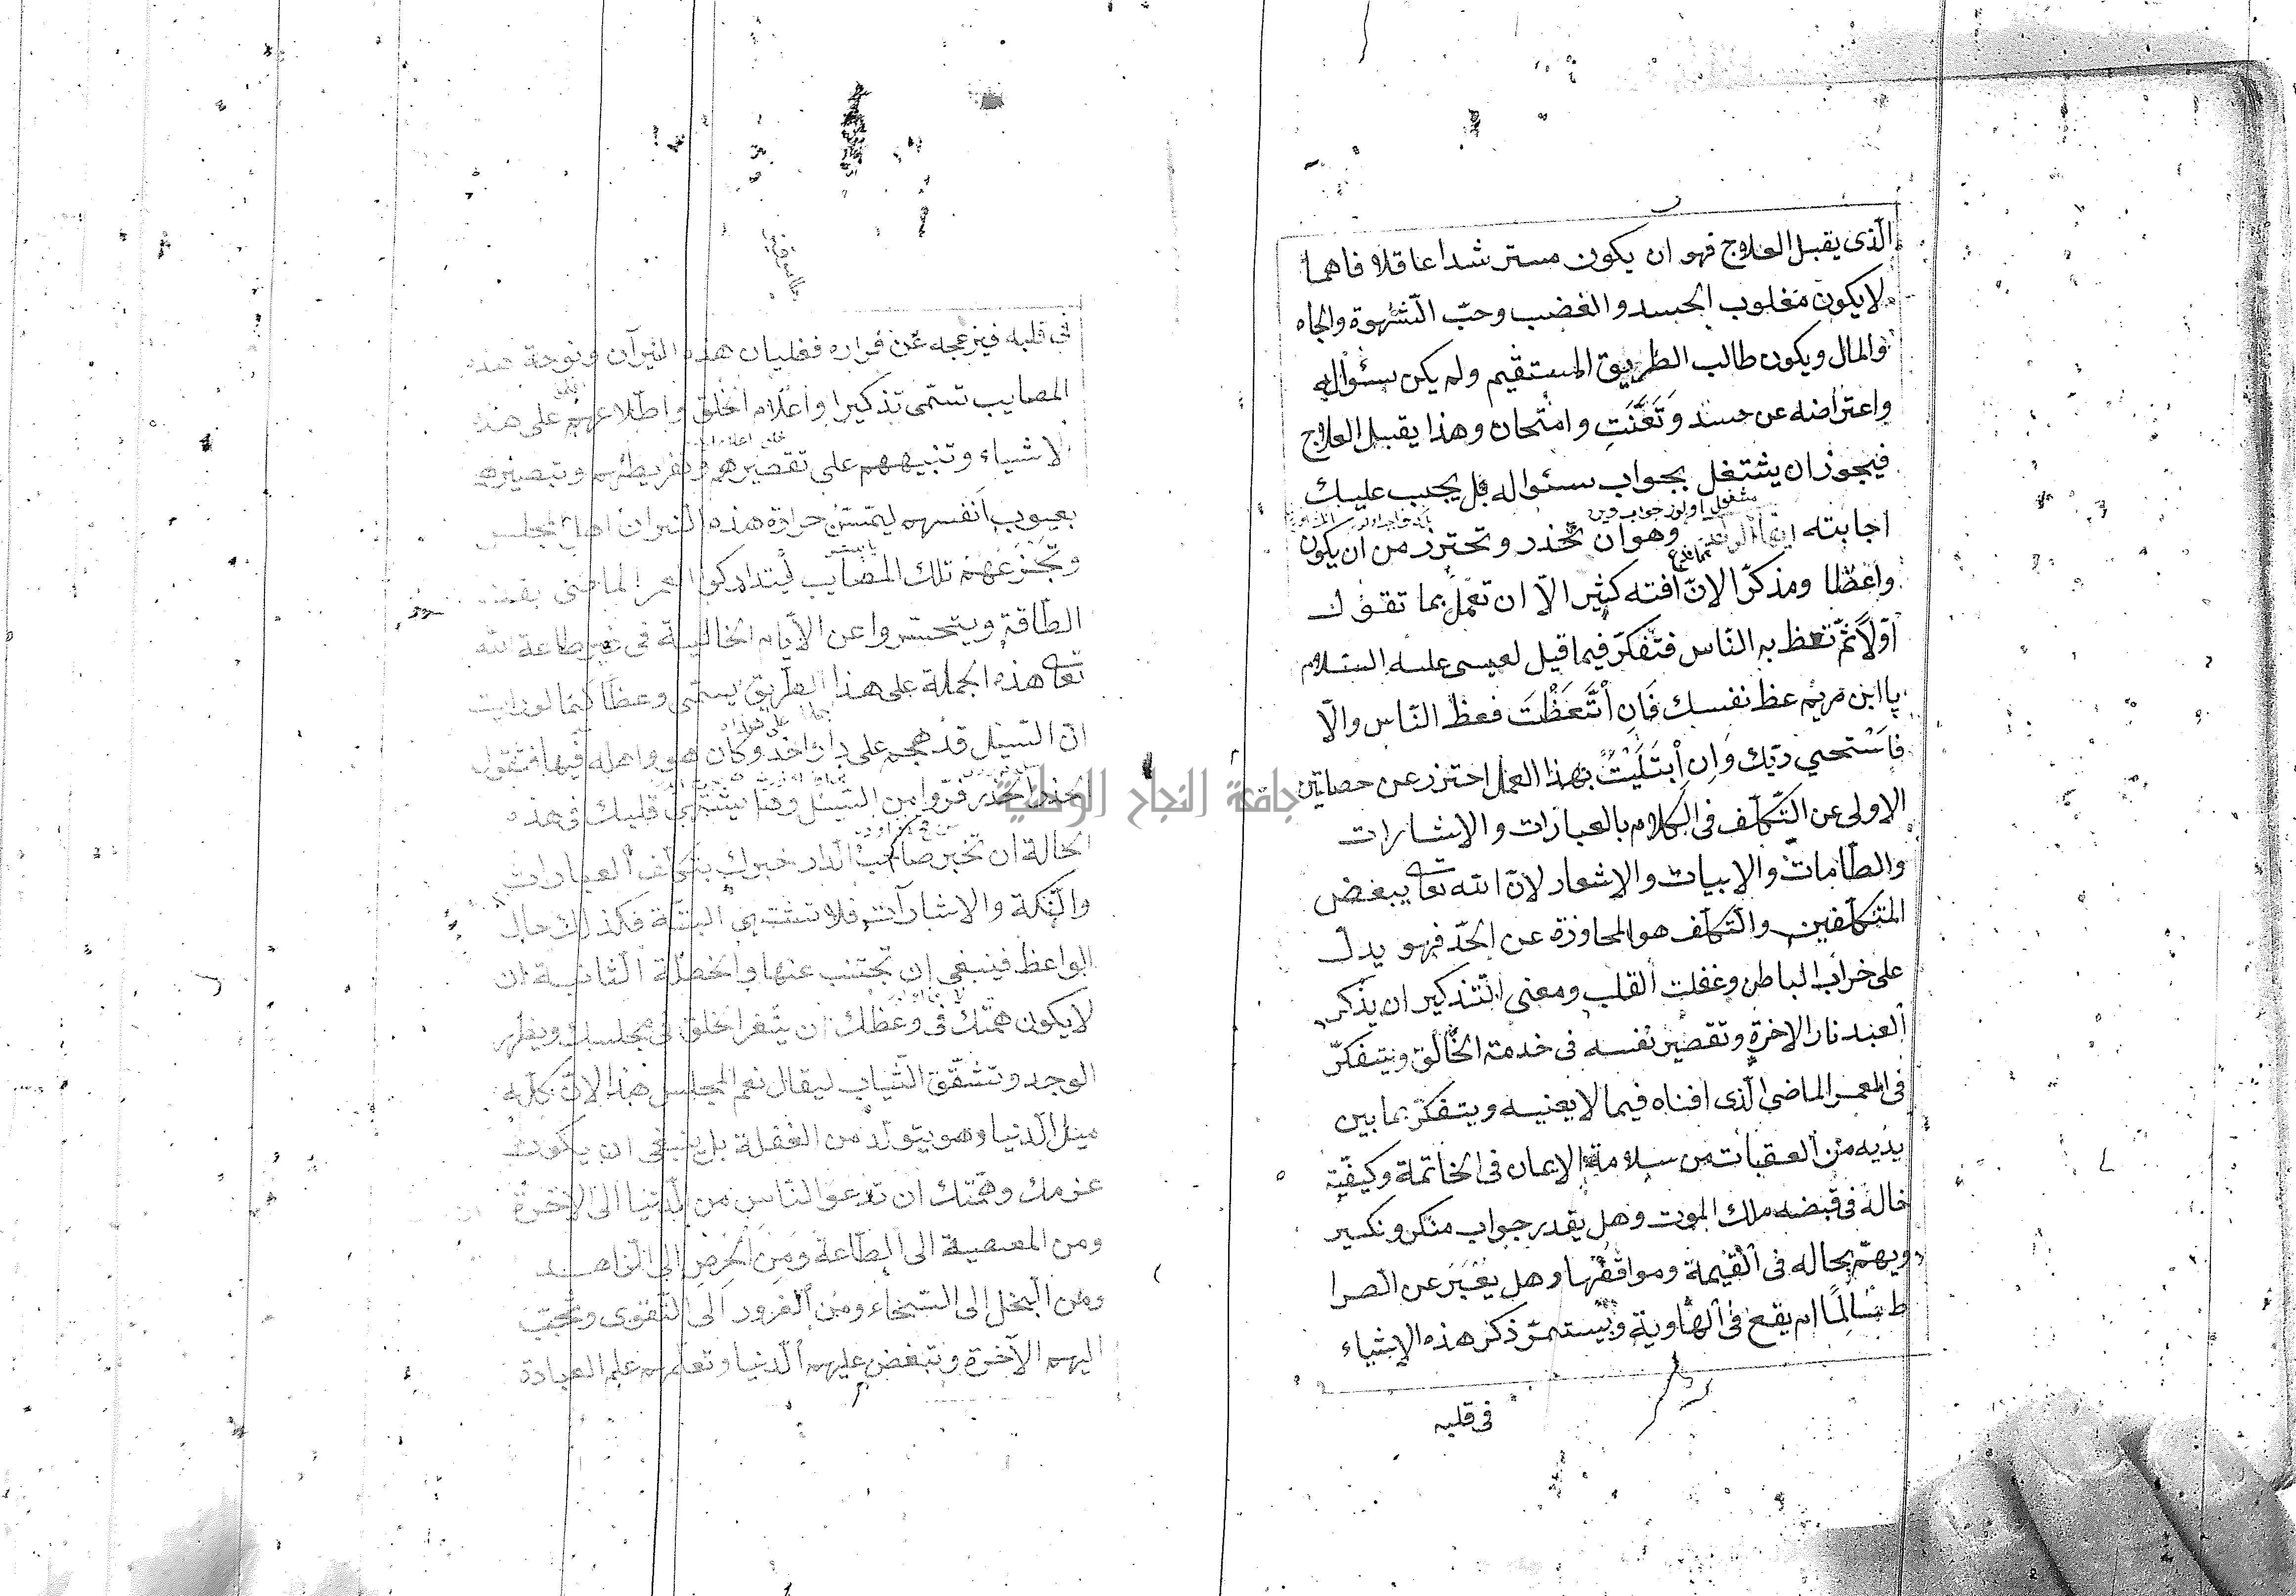 الّذى يقبل العلاج فهو ان يكون مسترشدا عاقلا فاهما
لا يكون مغلوب الحسد والغضب وحبّ الشّهوة والجاه
والمال ويكون طالب الطّريق المستقيم ولم يكن سئواله
واعتراضه عن حسد وتَعَنَّتِ وامتحان وهذا يقبل العلاج
فيجوز ان يشتغل بجواب سئواله بل يجب عليك
اجابته وهو ان تحذر وتحترز من ان يكون
واعظا ومذكرّا لانّ افته كثيرا الّا ان تعمل بما تقول
اوّلاً ثمّ تعظ به النّاس فتفكرّ فيما قيل لعيسى عليه السّلام
يا ابن مريم عظ نفسك فَاِن اْتَّعَظْتَ فعظ النّاس والّا
فاسْتحيي ربّك وَاِن اْبتَلَيْتْ بهذا العمل احترز عن خصلتين
الاولى عن التّكلّف فى الكلام بالعبارات والاشارات
والطّامات والابيات والاشعار لانّ الله تعا يبغض
المتكلّفين والتّكلّف هو المجاوزة عن الحدّ فهو يدلّ
على خراب الباطن وغفلت القلب ومعنى التّذكير ان يذكر
العبد نار الاخرة وتقصير نفسه فى خدمة الخالق ويتفكرّ
فى العمر الماضى الّذى افناه فيما لا يعنيه ويتفكرّ بما بين
يديه من العقبات من سلامة الايمان فى الخاتمة وكيفيّة
حاله فى قبضه ملك الموت وهل يقدر جواب منكر ونكير
ويهتمّ بحاله فى القيمة ومواقفها وهل يَعْبَرَ عن الصرا
ط سَالِمًا ام يقع فى الهاوية ويستمرّ ذكر هذه الاشياء
فى قلبه
فى قلبه فيزعجه عن قراره فغليان هذه النيران ونوحة هذه
المصايب تسمّى تذكيرا واعلام الخلق واطّلاعهم على هذه
الاشياء وتنبيههم على تقصيرهم وتفريطهم وتبصيرهم
بعيوب انفسهم ليمسّن حرارة هذه النيران اهل المجلس
وتجزعهم تلك المصايب ليتداركوا العمر الماضى بقدر
الطّاقة ويتحسّروا عن الايّام الخالية فى غير طاعة الله
تعا هذه الجملة على هذا الطّريق يسمّى وعظا كما لو رايت
انّ السّيل قد هجم على دار احد وكان هو واهله فيها فتقول
الحذر الحذر فرّوا من السّيل وهل يشتهى قلبك فى هذه
الحالة ان تخبر صاحب الدّار خبرك بتكلّف العبارات
والنّكة والاشارات فلا تشتهى البتّة فكذلك حال
الواعظ فينبغى ان تجتنب عنها والخصلة الثّانية ان
لا يكون همّتك فى وعظك ان ينفر الخلق فى مجلسك ويظهر
الوجد وتشقّق الثّياب ليقال نعم المجلس هذا لانّ كلّه
ميل الدّنيا وهو يتولّد من الغفلة بل ينبغى ان يكون
عزمك وهمّتك ان تدعو النّاس من الدّنيا الى الآخرة
ومن المعصية الى الطّاعة ومن الحرص الى الزّاهد
ومن البخل الى السّخاء ومن الغرور الى التّقوى وتحبّب
اليهم الآخرة وتبغض عليهم الدّنيا وتعلّمهم علم العبادة
جامعة النجاح الوطنية